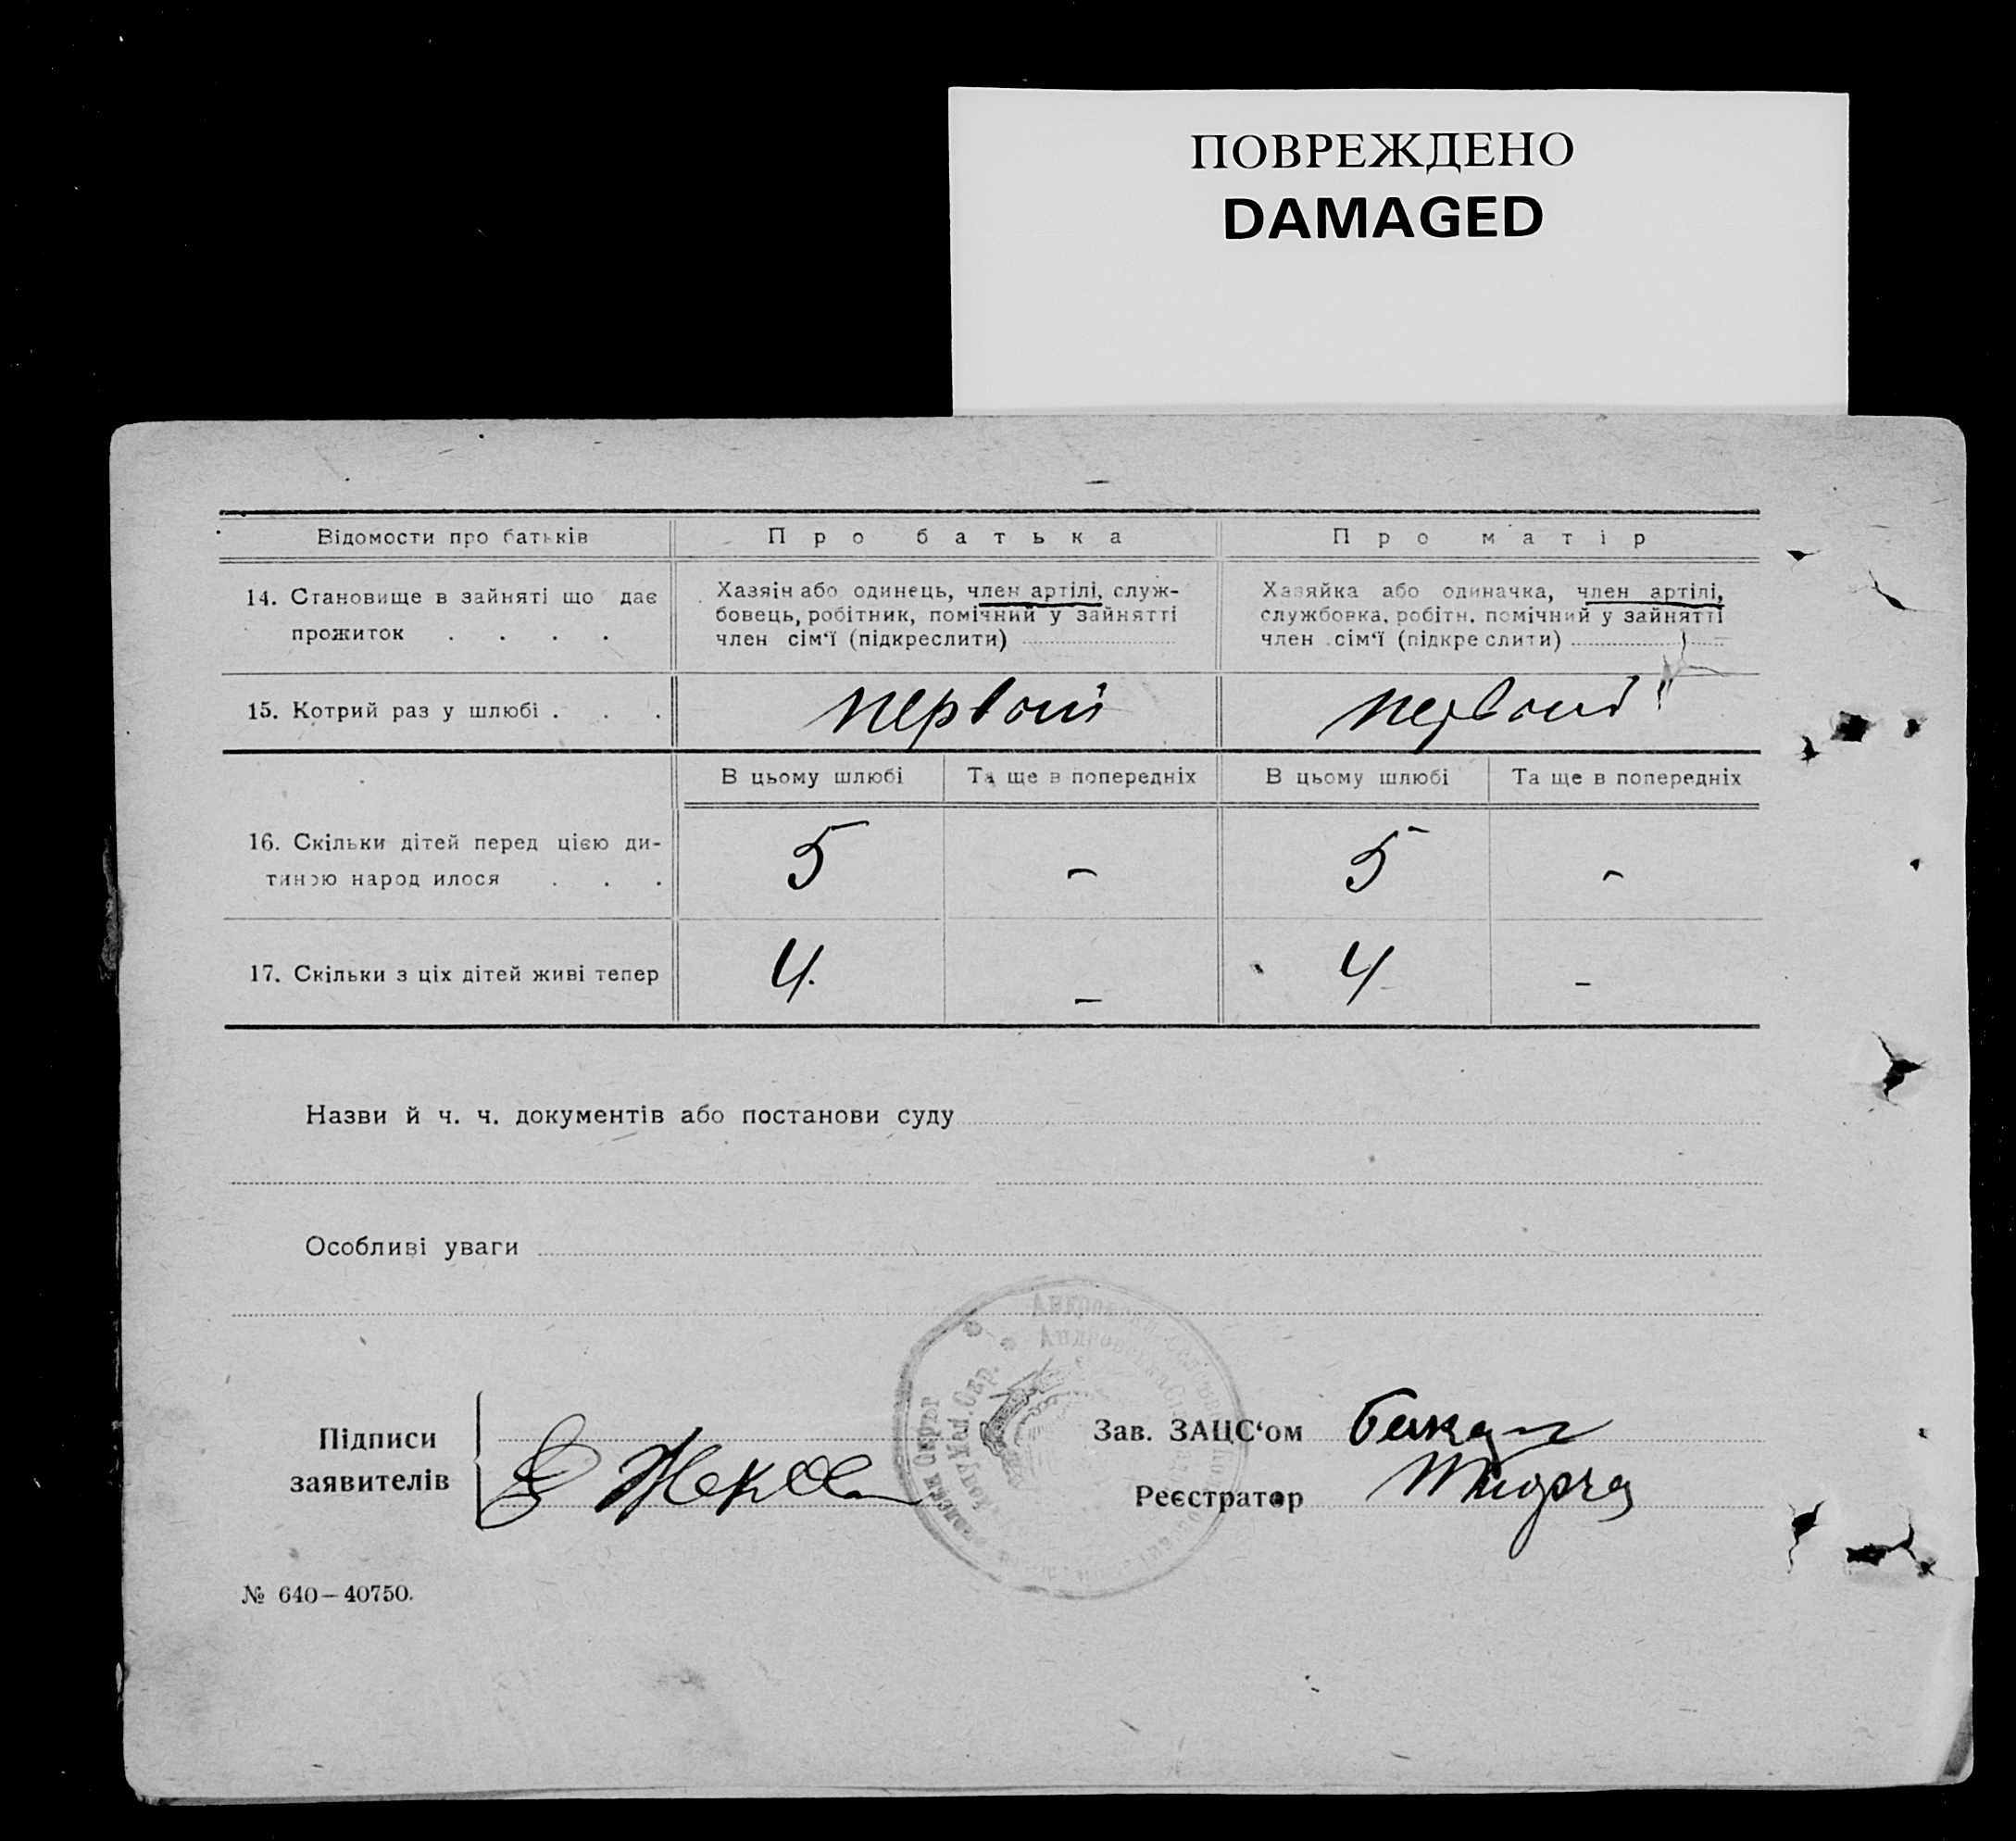 ПОВРЕЖДЕНО
DAMAGED
Відомости про батьків
Про батька
Про матір
14. Становище в зайняті що дає
прожиток . . . .
Хазяін або одинець, член артілі, служ-
бовець, робітник, помічний у зайнятті
член сім'ї (підкреслити)
Хазяйка або одиначка, член артілі,
службовка, робітн. помічний у зайнятті
член сім'ї (підкреслити)
15. Котрий раз у шлюбі . . .
первый
первый
В цьому шлюбі
Та ще в попередніх
В цьому шлюбі
Та ще в попередніх
16. Скільки дітей перед цією ди-
тиною народилося . . .
5
-
5
-
17. Скільки з ціх дітей живі тепер
4.
-
4
-
Назви й ч. ч. документів або постанови суду
Особливі уваги
Підписи
заявителів
Зав. ЗАЦС'ом
Реєстратор
№ 640—40750.